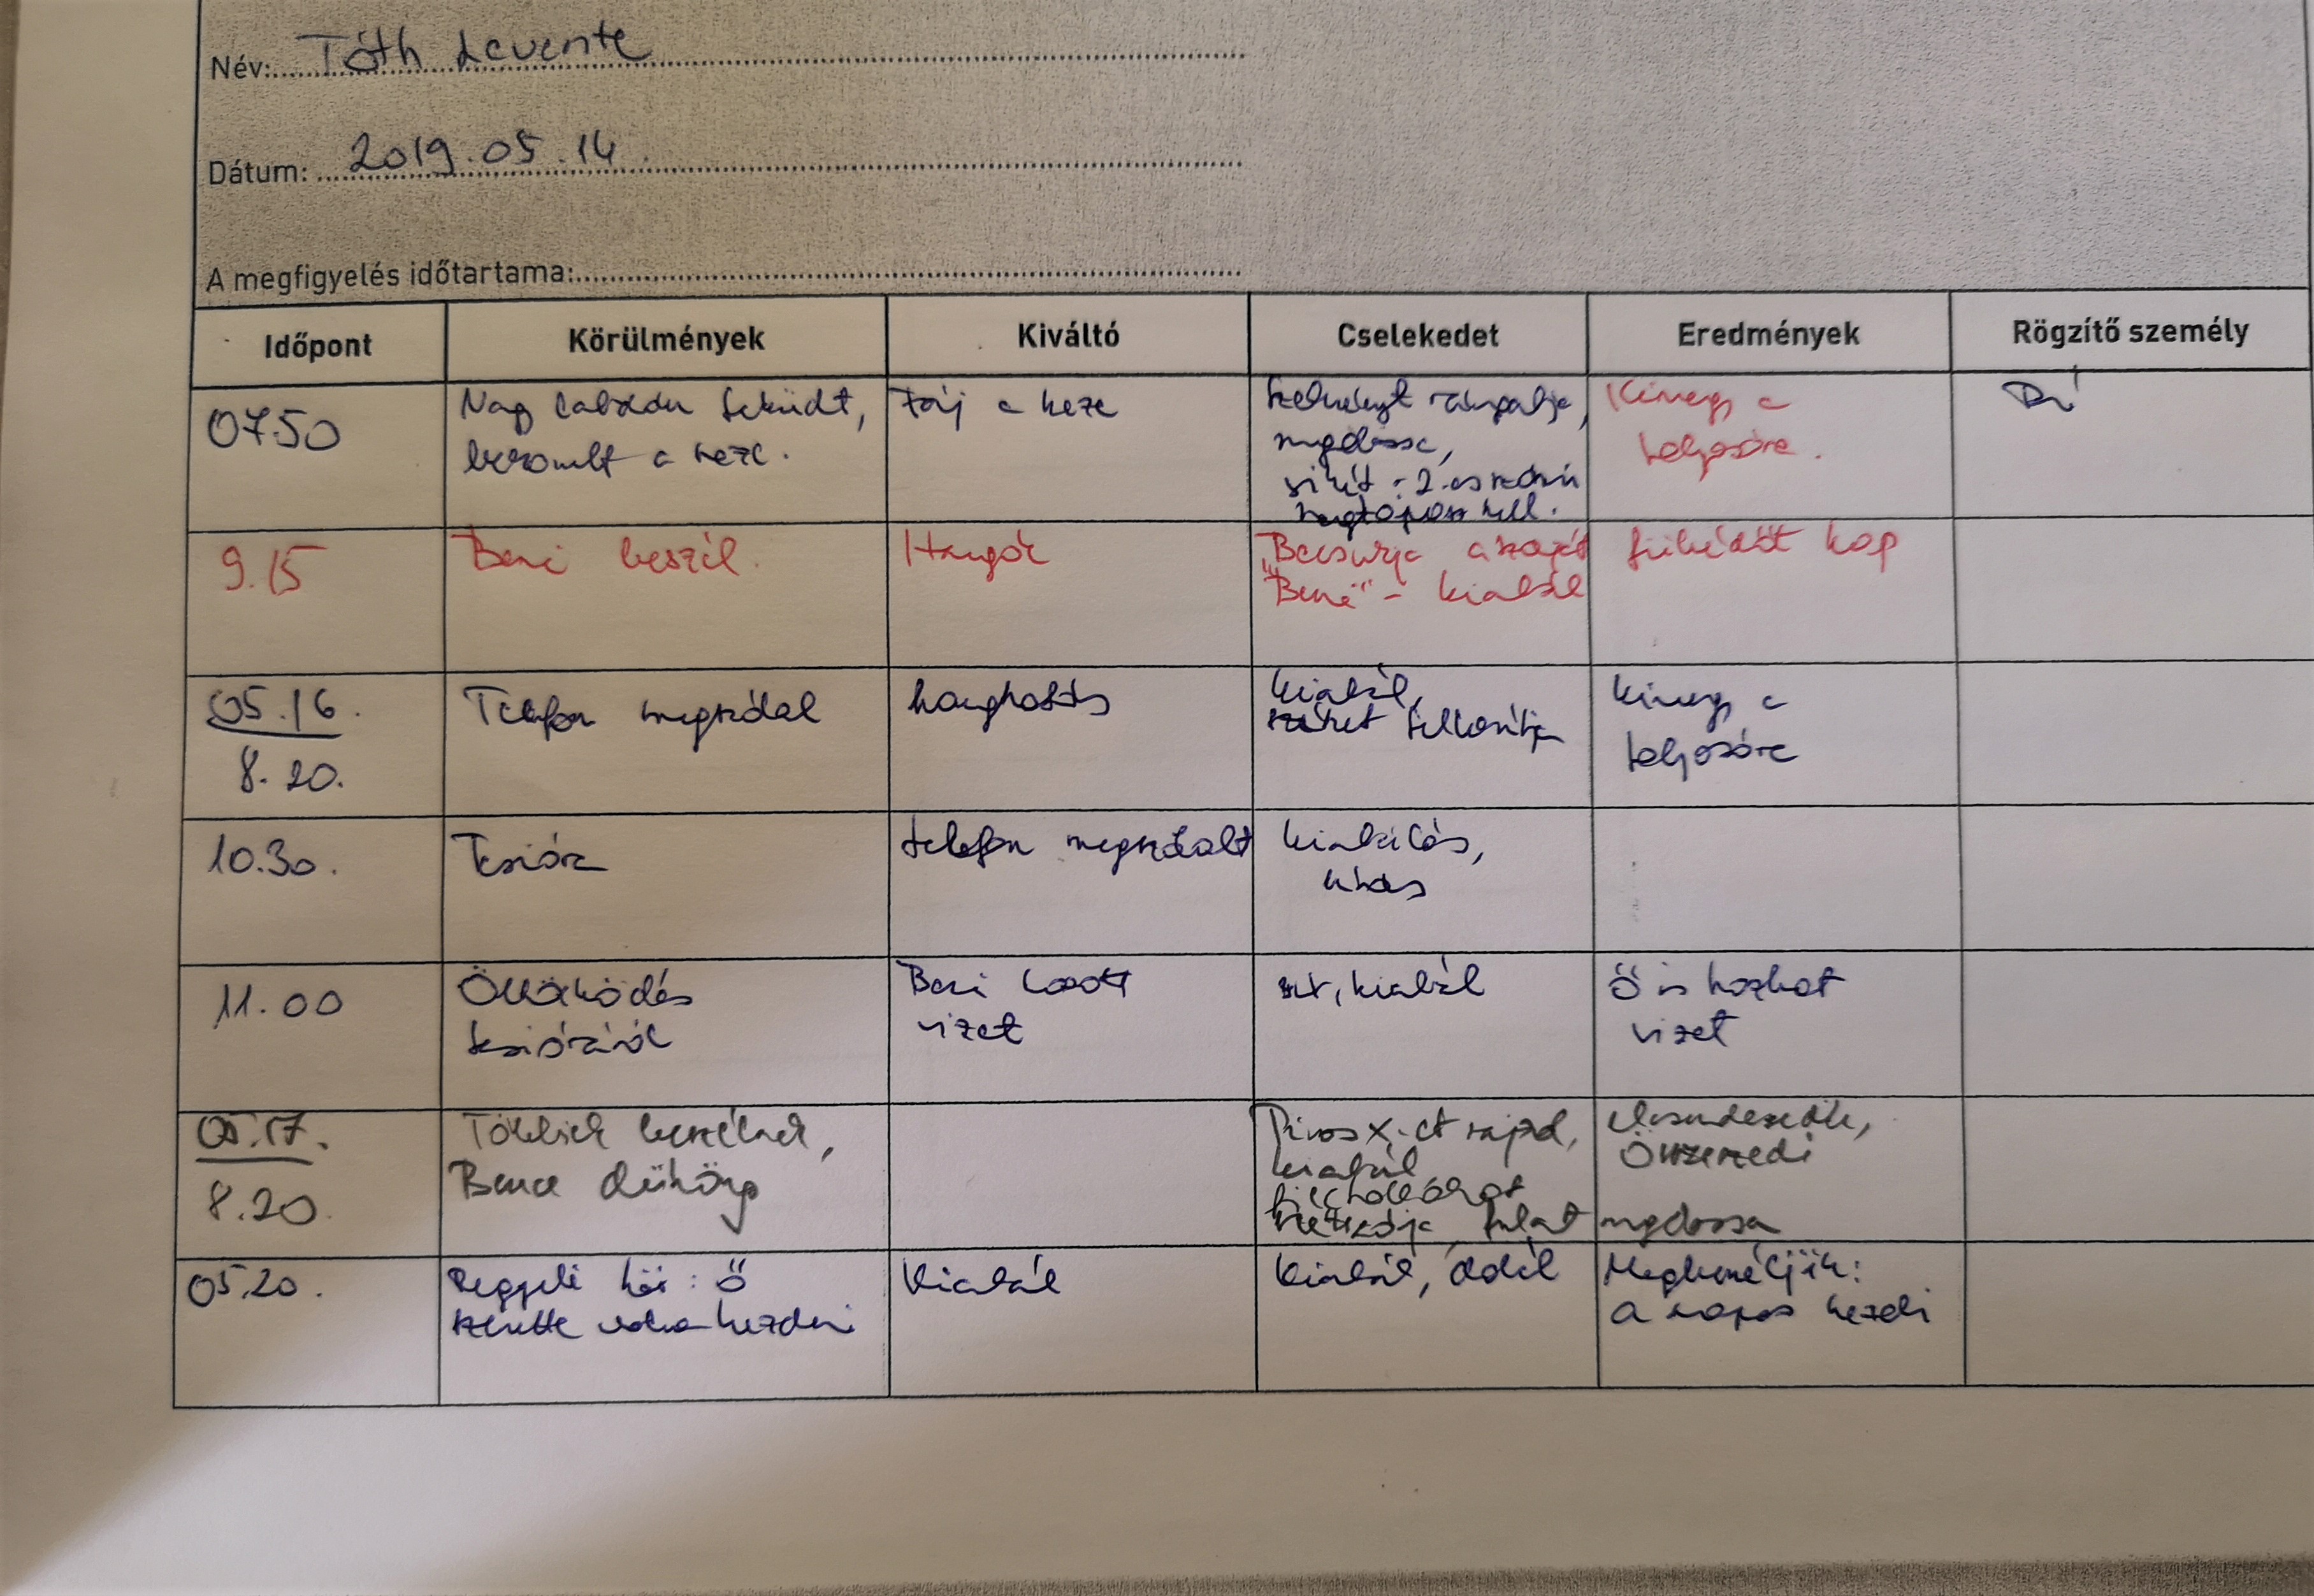 Név: Tóth Levente
Dátum: 2019.05.14.
A megfigyelés időtartama:
Időpont Körülmények Kiváltó Cselekedet Eredmények Rögzítő személy
07.50
Nag labdán feküdt,
beszorult a keze.
Fáj a keze
szekrényt rángatja,
megdossa,
sikít
Kimegy a
folyosóra.
9.15
Beni beszél.
Hangok
Becsukja a száját
"Beni" - kiabál
fülvédőt kap
05.16.
8.20.
Telefon megszólal
hanghatás
kiabál,
széket fellórítja
kimegy a
folyosóra
10.30.
Tesióra
telefon megszólalt
kiabálás,
11.00
Öltözködés
tesióráról
Beni hozott
vizet
sír, kiabál
Ő is hozhat
vizet
05.17.
8.20.
Többiek beszélnek,
Bence dühöng
Piros X-et rajzol,
kiabál
szétszórja,
elcsendesedik,
Összeszedi
05.20.
Reggeli kör: Ő
szerette volna kezdeni
Kiabál
Kiabál,
Megbeszéljük:
a napos kezdi